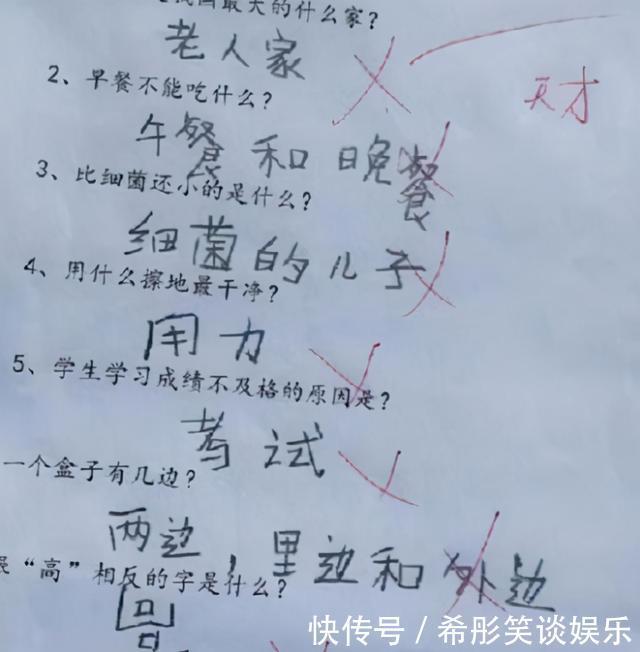 国最大的什么家?
老人家
天才
2、早餐不能吃什么?
午餐和晚餐
3、比细菌还小的是什么?
细菌的儿子
4、用什么擦地最干净?
用力
5、学生学习成绩不及格的原因是?
考试
一个盒子有几边?
两边,里边和外边
“高”相反的字是什么?
快传号/希彤笑谈娱乐